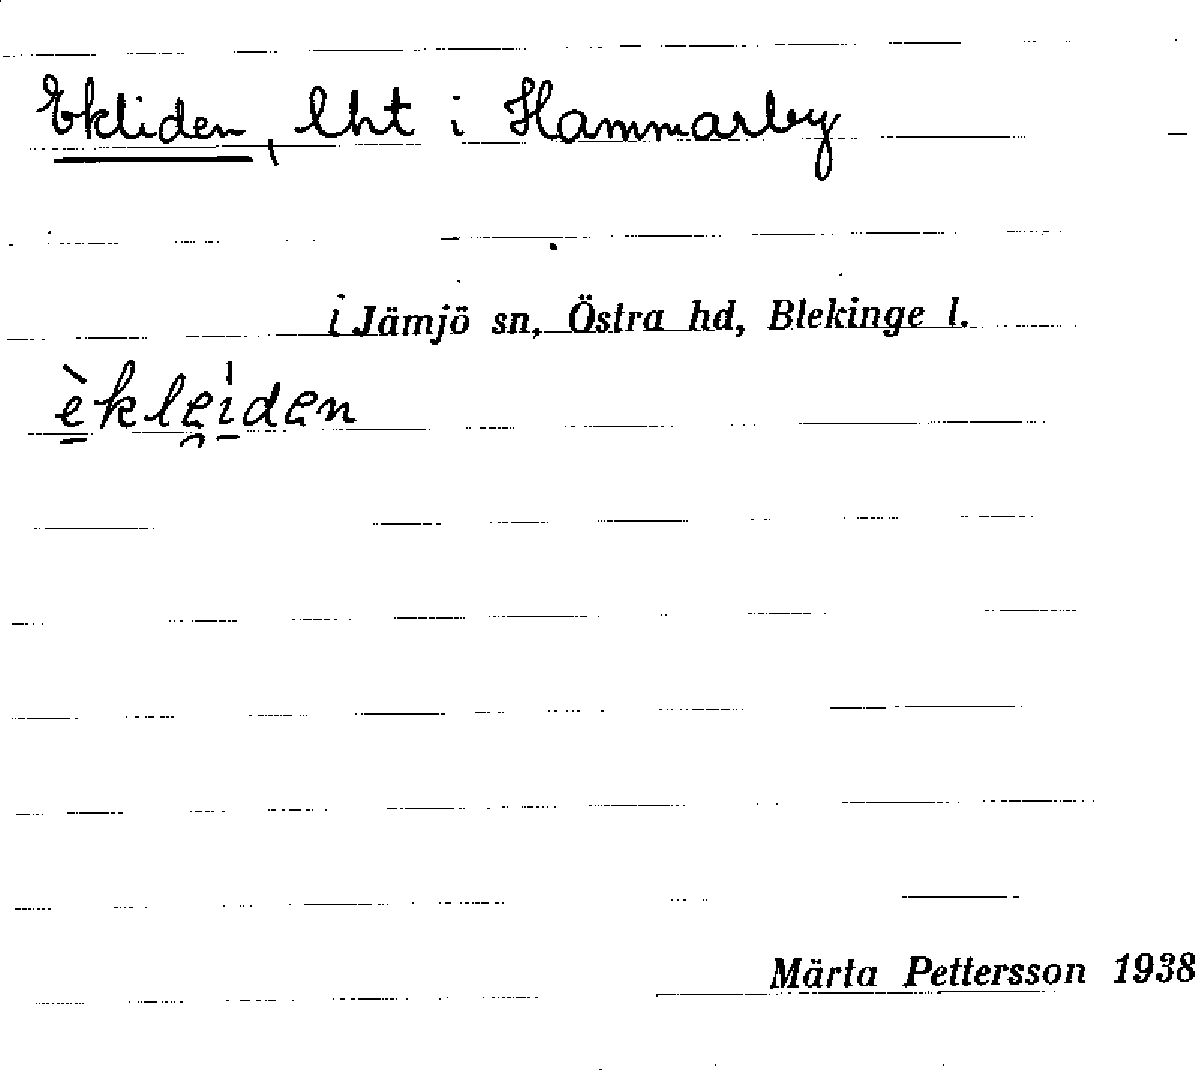 Ekliden, lht i Hammarby
i Jämjö sn, Östra hd, Blekinge l.
èkleiden
Märta Pettersson 1938